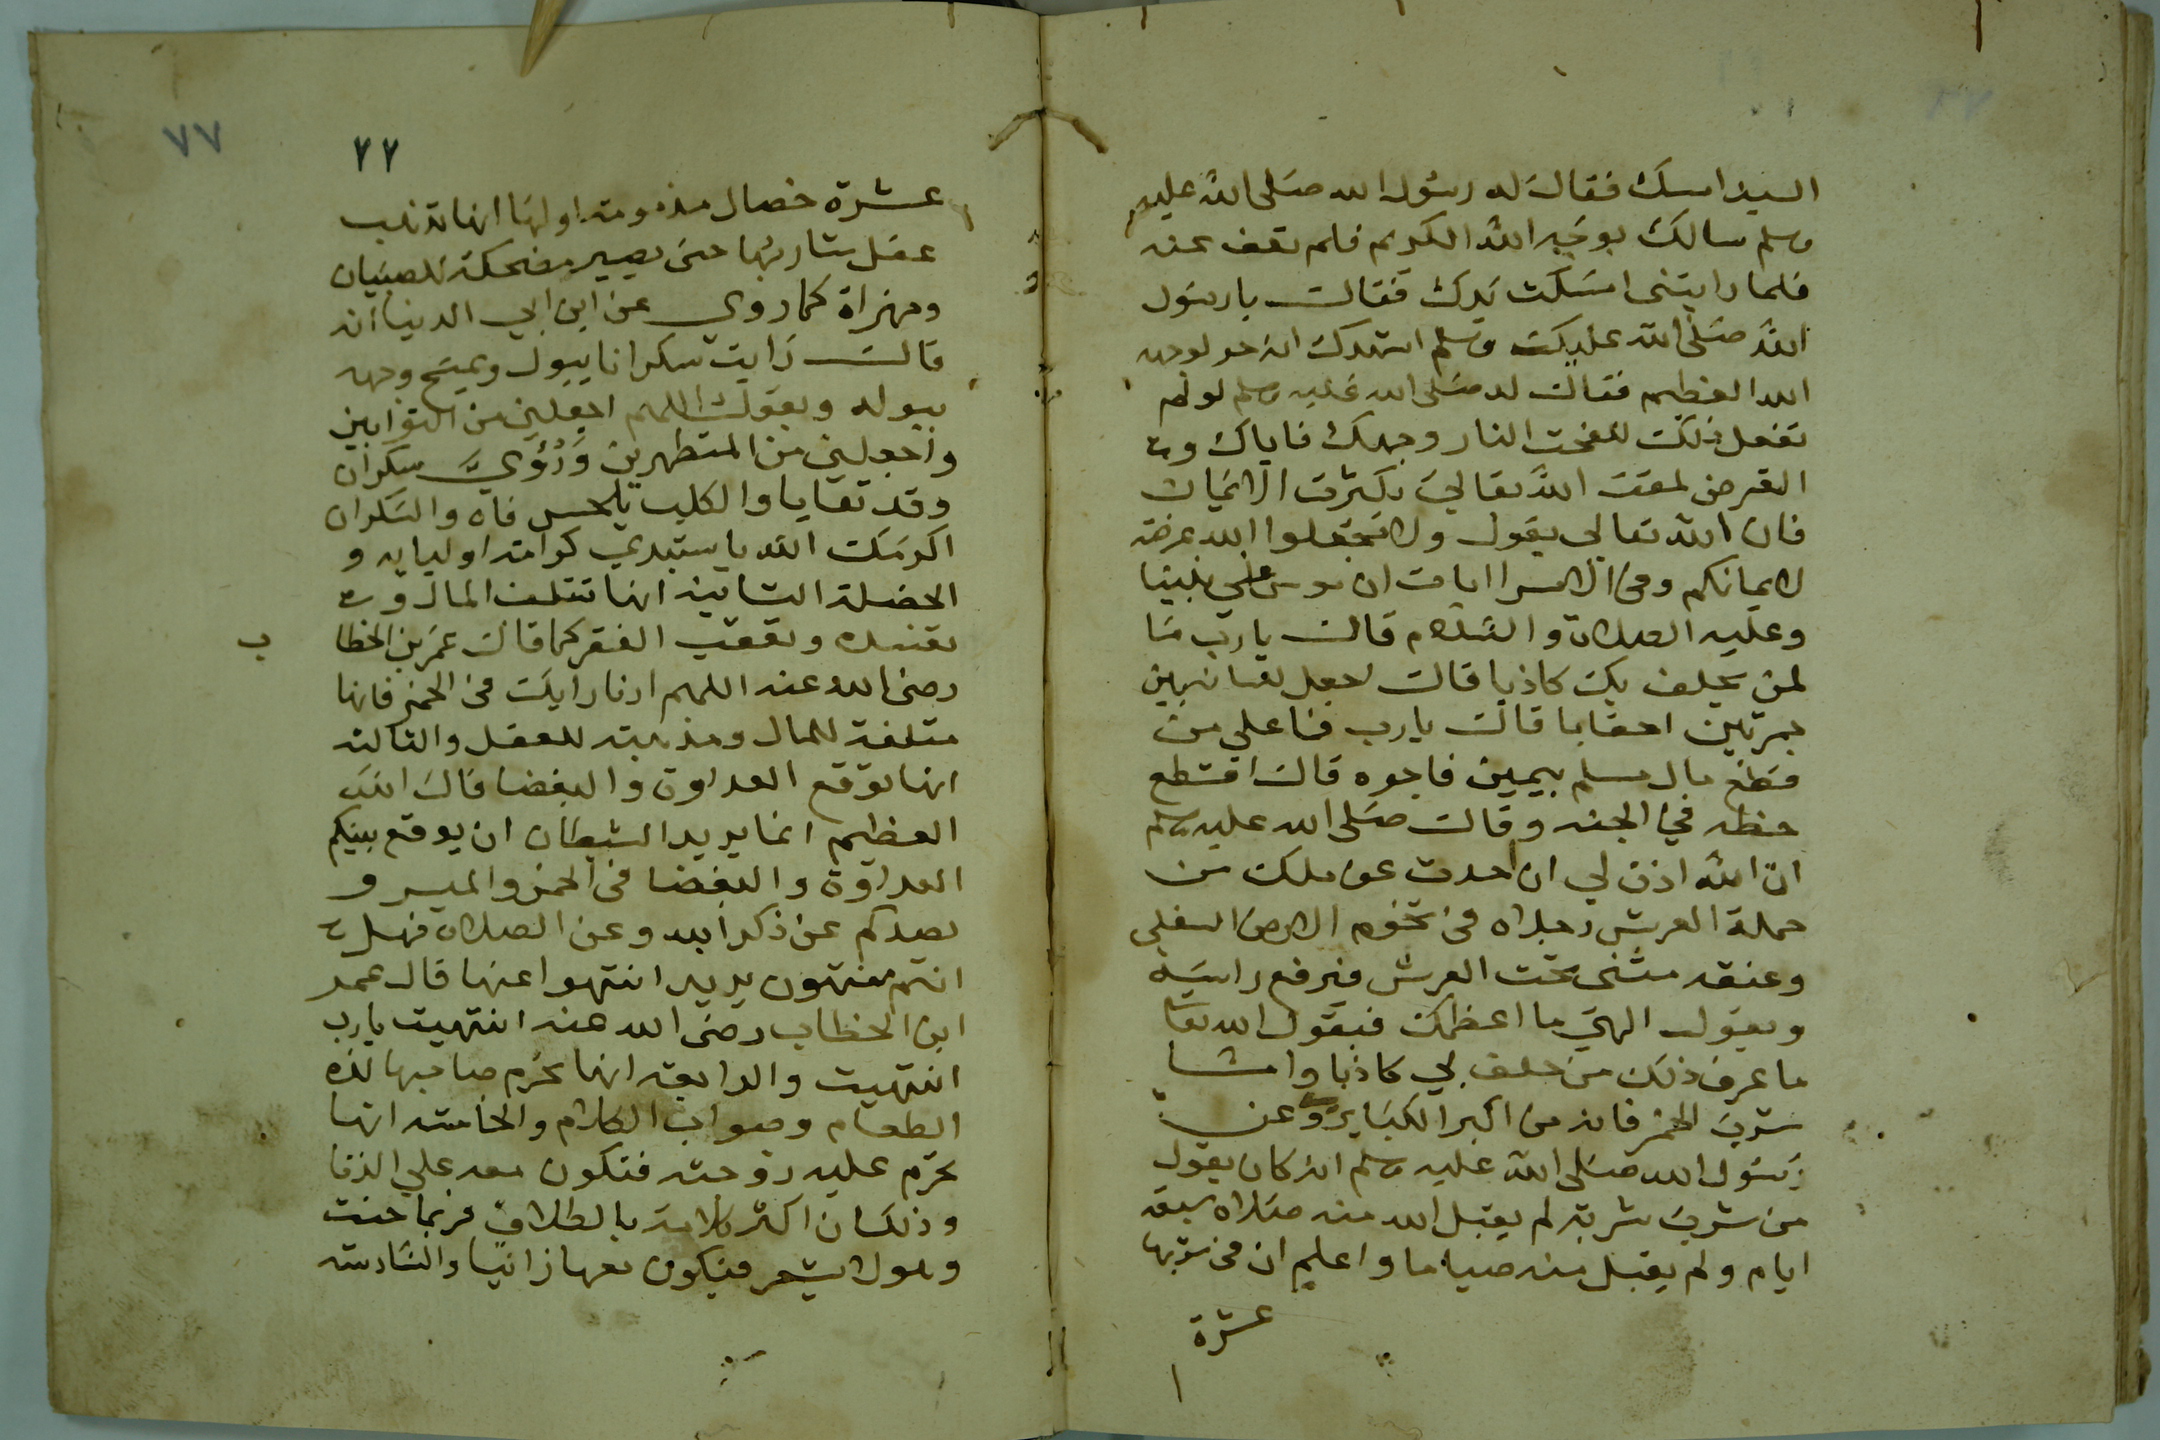 السيد امسك فقال له رسول الله صلى الله عليه
وسلم سالك بوجه الله الكريم فلم تعف عنه
فلما رايتني امسكت يدك فقال يا رسول
الله صلى الله عليك وسلم اشهدك انه حر لوجه
الله العظيم فقال له صلى الله عليه وسلم لو لم
تفعل ذلك للفحت النار وجهك فاياك و
التعرض لمقت الله تعالى بكثرة الايمان
فان الله تعالى يقول ولا تجعلوا الله عرضة
لايمانكم وفي الاسرا ايات ان موسى على نبينا
وعليه الصلاة والسلام قال يا رب ما
لمن يحلف بك كاذبا قال اجعل لسانه بين
جمرتين احقابا قال يا رب فما على من
قطع مال مسلم بيمين فاجره قال اقتطع
حظه في الجنه وقال صلى الله عليه وسلم
ان الله اذن لي ان احدث عن ملك من
حملة العرش رجلاه في تخوم الارض السفلى
وعنقه مثنى تحت العرش فيرفع راسه
ويقول الهي ما اعظمك فيقول الله تعا
ما عرف ذلك من حلف بي كاذبا واما
شرب الخمر فانه من اكبر الكباير وعن
رسول الله صلى الله عليه وسلم انه كان يقول
من شرب شربة لم يقبل الله منه صلاه سبعة
ايام ولم يقبل منه صياما واعلم ان في شربها
عشرة
٧٧
٧٧
عشرة خصال مذمومة اولها انها تذهب
عقل شاربها حتى يصير مضحكة للصبيان
ومهزاة كما روي عن ابن ابي الدنيا انه
قال رايت سكرانا يبول ويمسح وجهه
ببوله ويقول اللهم اجعلني من التوابين
واجعلني من المتطهرين ورؤي سكران
وقد تقايا والكلب يلحس فاه والسكران
اكرمك الله يا سيدي كرامة اوليايه و
الخصلة الثانية انها تتلف المال و
تفسده وتعقب الفقر كما قال عمر بن الخطا
ب
رضي الله عنه اللهم ارنا رايك في الخمر فانها
متلفة للمال ومذهبة للعقل والثالثه
انها توقع العداوة والبغضا قال الله
العظيم انما يريد الشيطان ان يوقع بينكم
العداوة والبغضا في الخمر والميسر و
يصدكم عن ذكر الله وعن الصلاة فهل
انتم منتهون يريد انتهوا عنها قال عمر
ابن الخطاب رضي الله عنه انتهيت يا رب
انتهيت والرابعة انها تحرم صاحبها لذة
الطعام وصواب الكلام والخامسه انها
تحرم عليه زوجته فتكون معه على الزنا
وذلك ان اكثر كلامه بالطلاق فربما حنث
وهو لا يشعر فيكون معها زانيا والسادسة